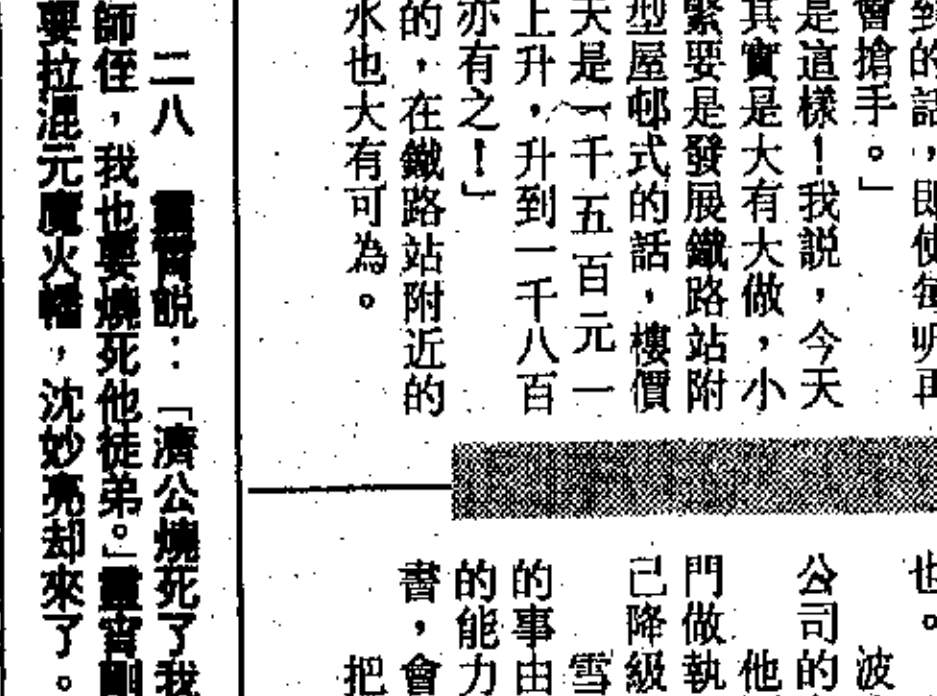 到的話，即使每呎再
會搶手。」
是這樣！我説，今天
其實是大有大做，小
緊要是發展鐵路站附
型屋邨式的話，樓價
天是一千五百元一
上升，升到一千八百
亦有之！」
的，在鐵路站附近的
水也大有可為。
也。
波
公司的
他
門做執
己降級
雪
的事由
的能力
書，會
把
二八 靈霄説：「濟公燒死了我
師侄，我也要燒死他徒弟。」靈霄剛
要拉混元魔火幡，沈妙亮却來了。